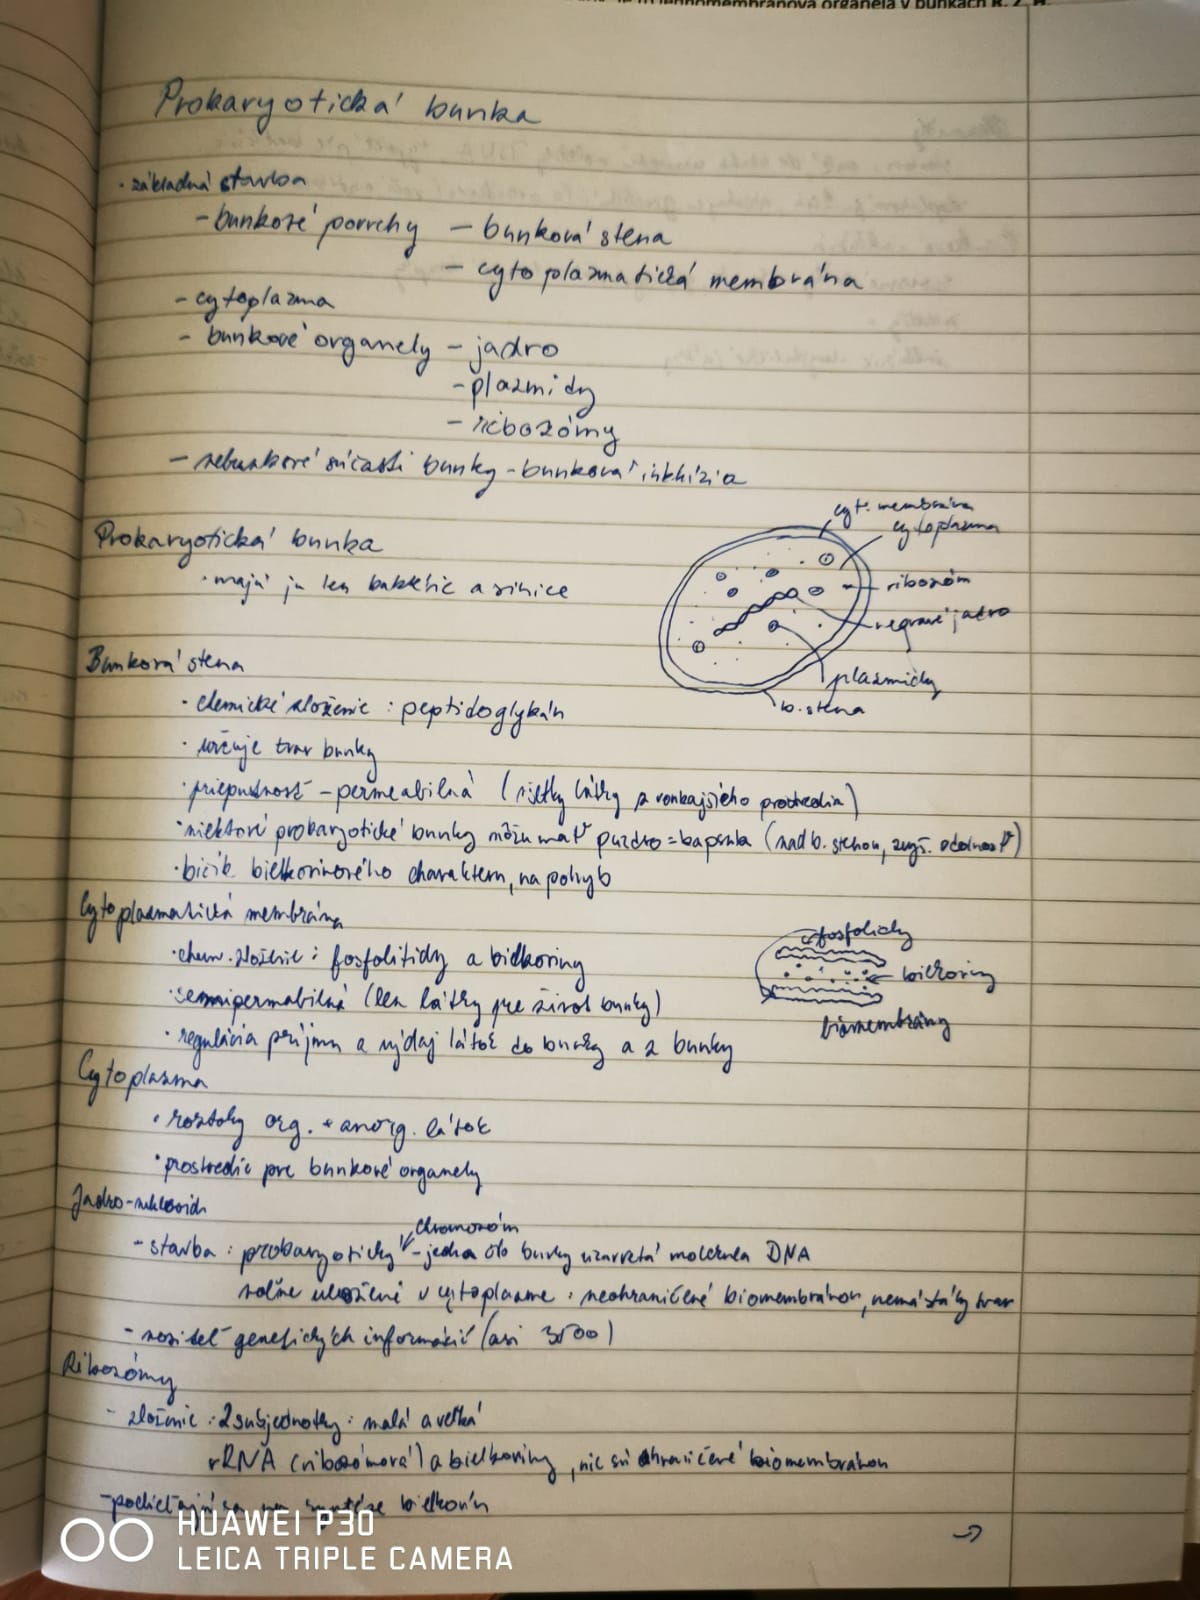 je to jednomembránová organela v bunkách R. Ž. H.
Prokaryotická bunka
· základná stavba
- bunkové povrchy - bunková stena
- cytoplazmatická membrána
- cytoplazma
- bunkové organely - jadro
- plazmidy
- ribozómy
- nebunkové súčasti bunky - bunková inklúzia
cyt. membrána
cytoplazma
ribozóm
nepravé jadro
plazmidy
b. stena
Prokaryotická bunka
· majú ju len baktérie a sinice
Bunková stena
· chemické zloženie : peptidoglykán
· určuje tvar bunky
· priepustnosť - permeabilná (všetky látky z vonkajšieho prostredia)
· niektoré prokaryotické bunky môžu mať puzdro = kapsula (nad b. stenou, zvyš. odolnosť)
· bičík bielkovinového charakteru, na pohyb
Cytoplazmatická membrána
· chem. zloženie : fosfolitidy a bielkoviny
· semipermabilná (len látky pre život bunky)
· regulácia príjmu a výdaj látok do bunky a z bunky
fosfolidy
bielkoviny
biomembrány
Cytoplazma
· roztoky org. + anorg. látok
· prostredie pre bunkové organely
Jadro - nukleoid
chromozóm
- stavba : prokaryotický - jedna do bunky uzavretá molekula DNA
voľne uložené v cytoplazme : neohraničené biomembránou, nemá stály tvar
- nositeľ genetických informácií (asi 3500)
Ribozómy
- zloženie : 2 subjednotky : malá a veľká
rRNA (ribozómová) a bielkoviny, nie sú ohraničené biomembránou
- podieľajú sa na syntéze bielkovín
→
HUAWEI P30
LEICA TRIPLE CAMERA